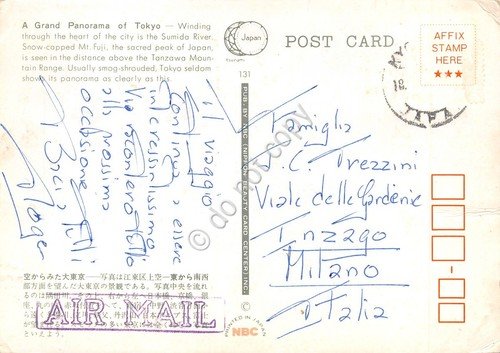 A Grand Panorama of Tokyo — Winding
through the heart of the city is the Sumida River.
Snow-capped Mt. Fuji, the sacred peak of Japan,
is seen in the distance above the Tanzawa Moun-
tain Range. Usually smog-shrouded, Tokyo seldom
shows its panorama as clearly as this.
Japan
POST CARD
AFFIX
STAMP
HERE
★★★
131
PUB. BY NBC (NIPPON BEAUTY CARD CENTER) INC.
il viaggio
continua, essere
interessantissimo
Vi racconterò tutto
alla prossima
occasione
Baci
Famiglia
J.C. Trezzini
Viale delle Gardenie
Inzago
Milano
Italia
do not copy
空からみた大東京——写真は江東区上空—東から南西
部方面を望んだ大東京の景観である。写真中央を流れ
AIR MAIL
PRINTED IN JAPAN
NBC